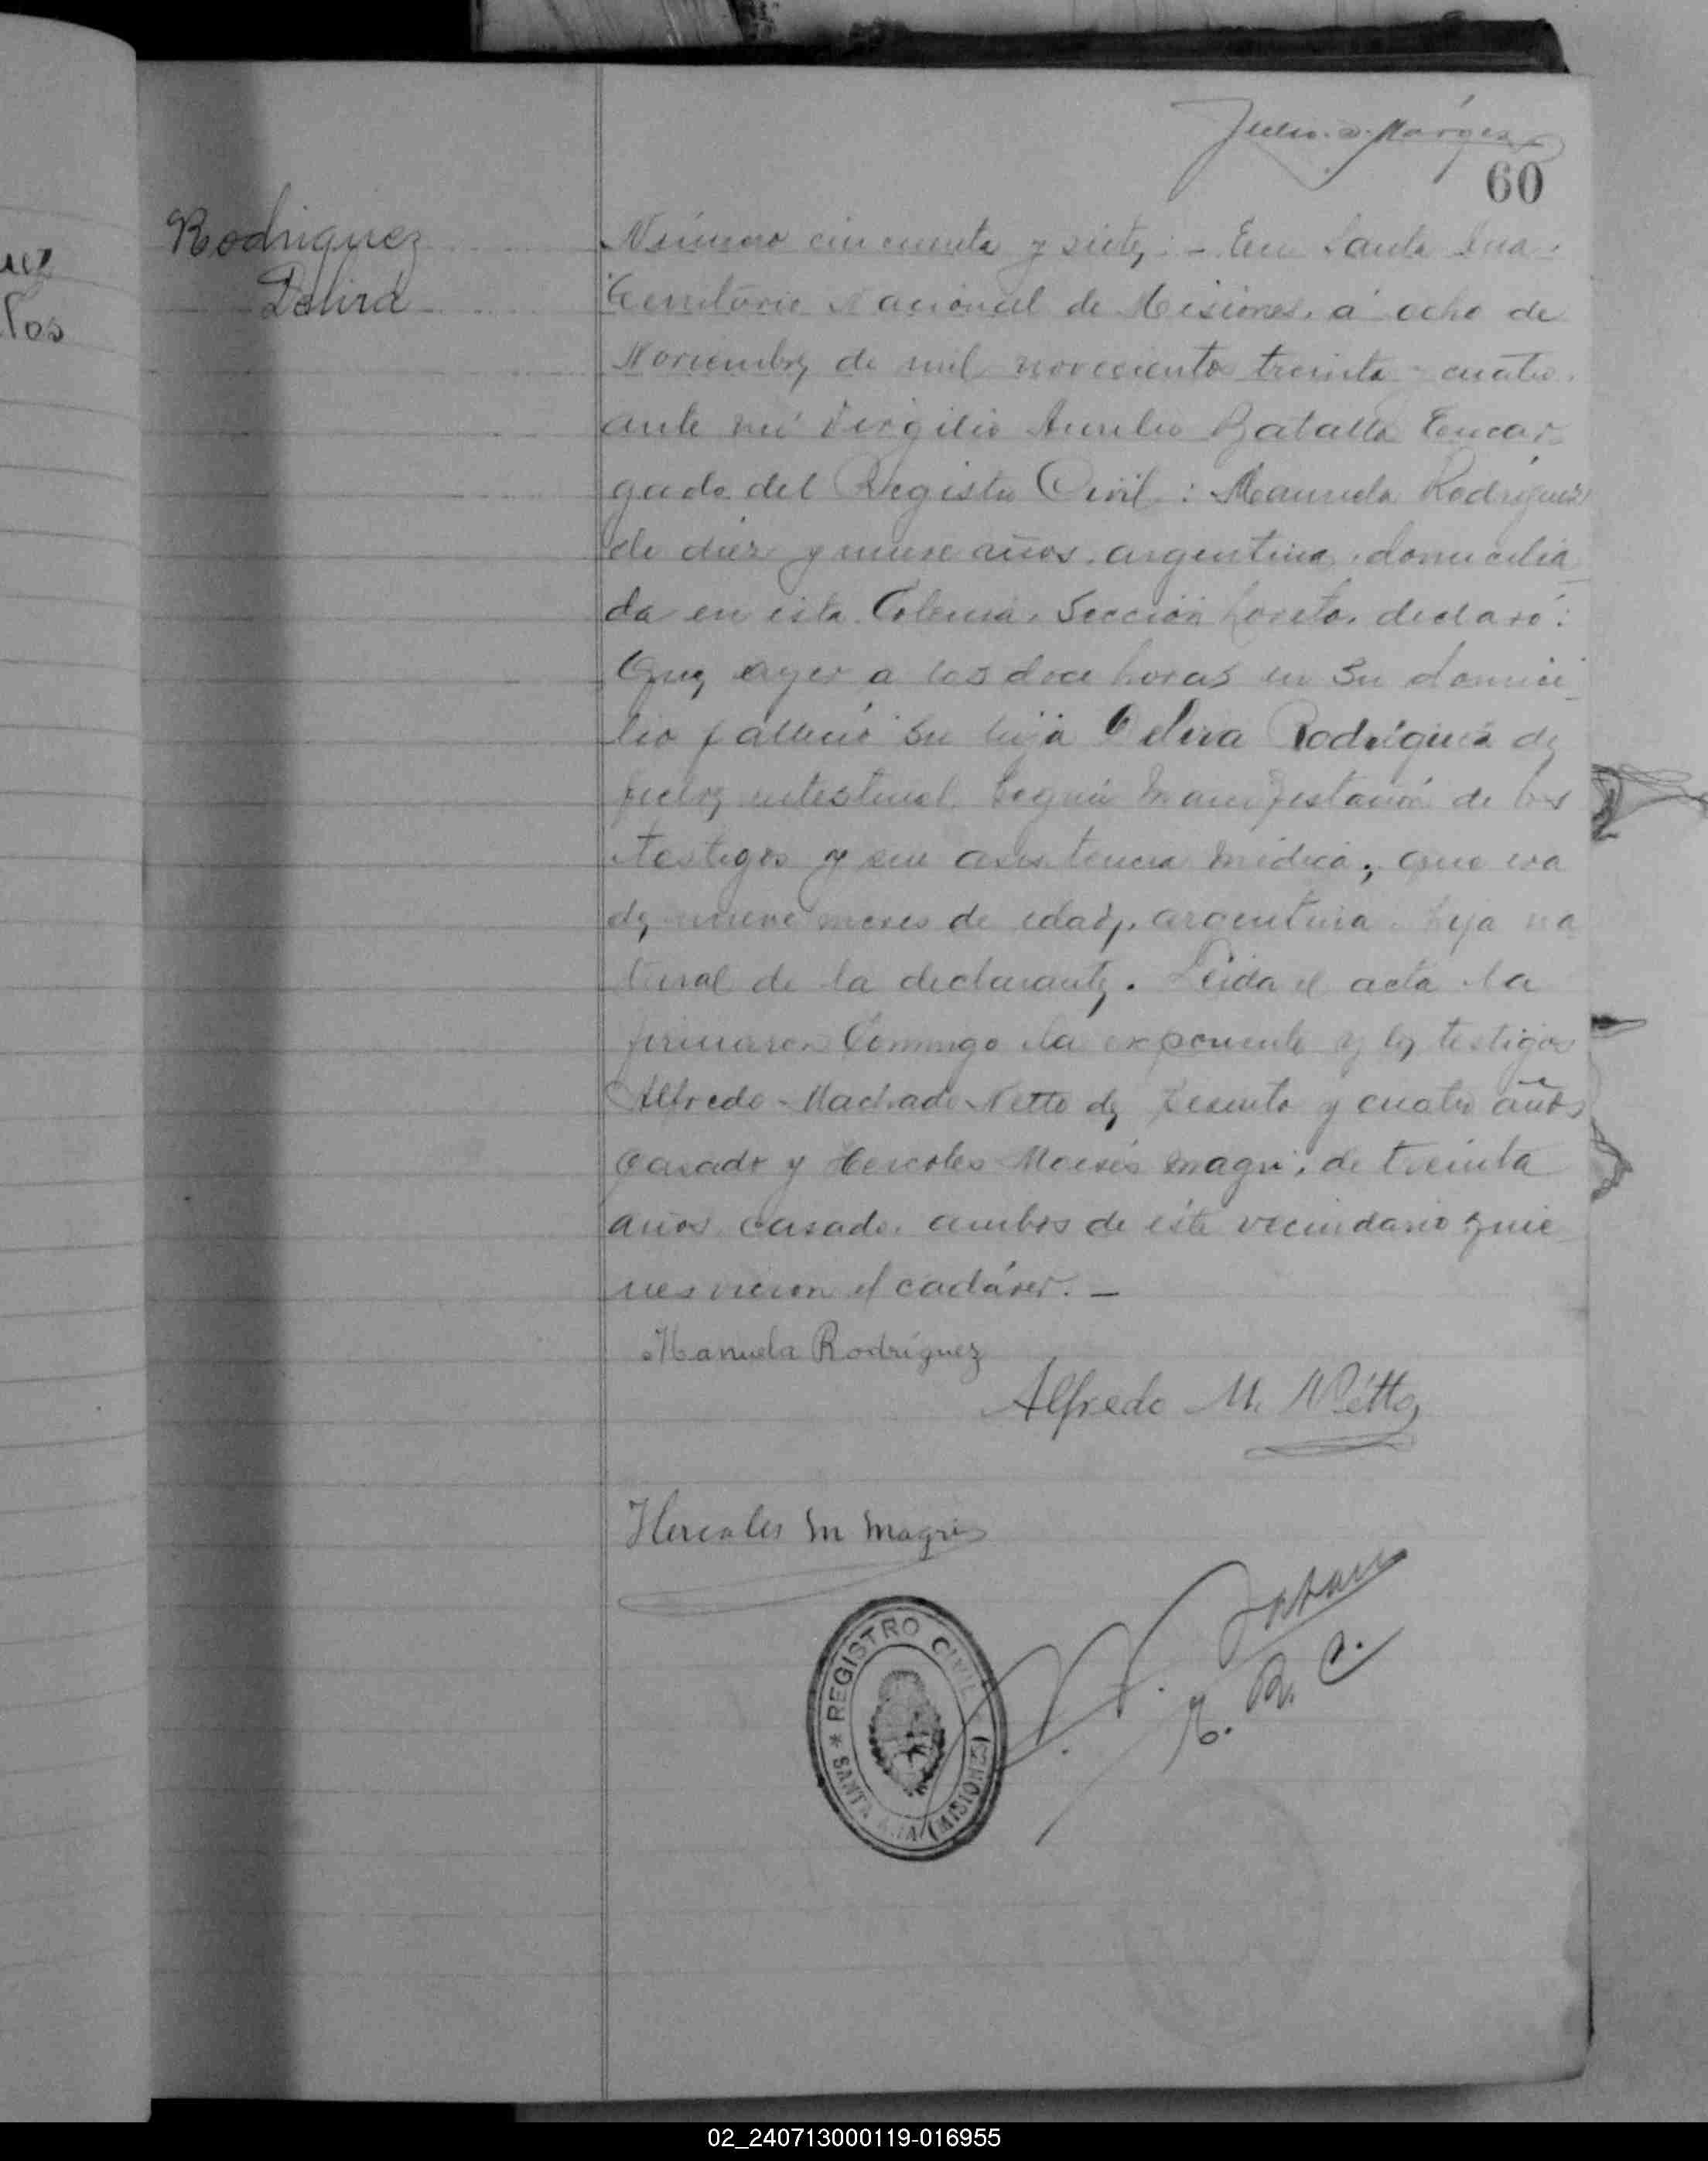 Julio
60
uez
los
Rodriguez
Delira
Número cincuenta y siete: - En Santa Ana.
Territorio Nacional de Misiones, á ocho de
Noviembre de mil novecientos treinta y cuatro.
ante mí Virgilio Aurelio Batalla Encar-
gado del Registro Civil: Manuela Rodriguez
de diez y nueve años, argentina, domicilia-
da en esta Colonia, Sección Loreto, declaró:
Que ayer a las doce horas en su domici-
lio falleció su hija Delira Rodríguez de
fiebre intestinal según manifestación de los
testigos y sin asistencia médica; que era
de nueve meses de edad, argentina, hija na-
tural de la declarante. Leida el acta la
firmaron conmigo la exponente y los testigos
Alfredo Machado Netto de y cuatro años
casado y Hercoles Moisés Magri, de treinta
años casado, ambos de éste vecindario quie-
nes vieron el cadáver. -
Manuela Rodríguez
Alfredo M. Netto
Hercoles M Magri
REGISTRO CIVIL
* SANTA ANA (MISIONES)
R. C.
02_240713000119-016955